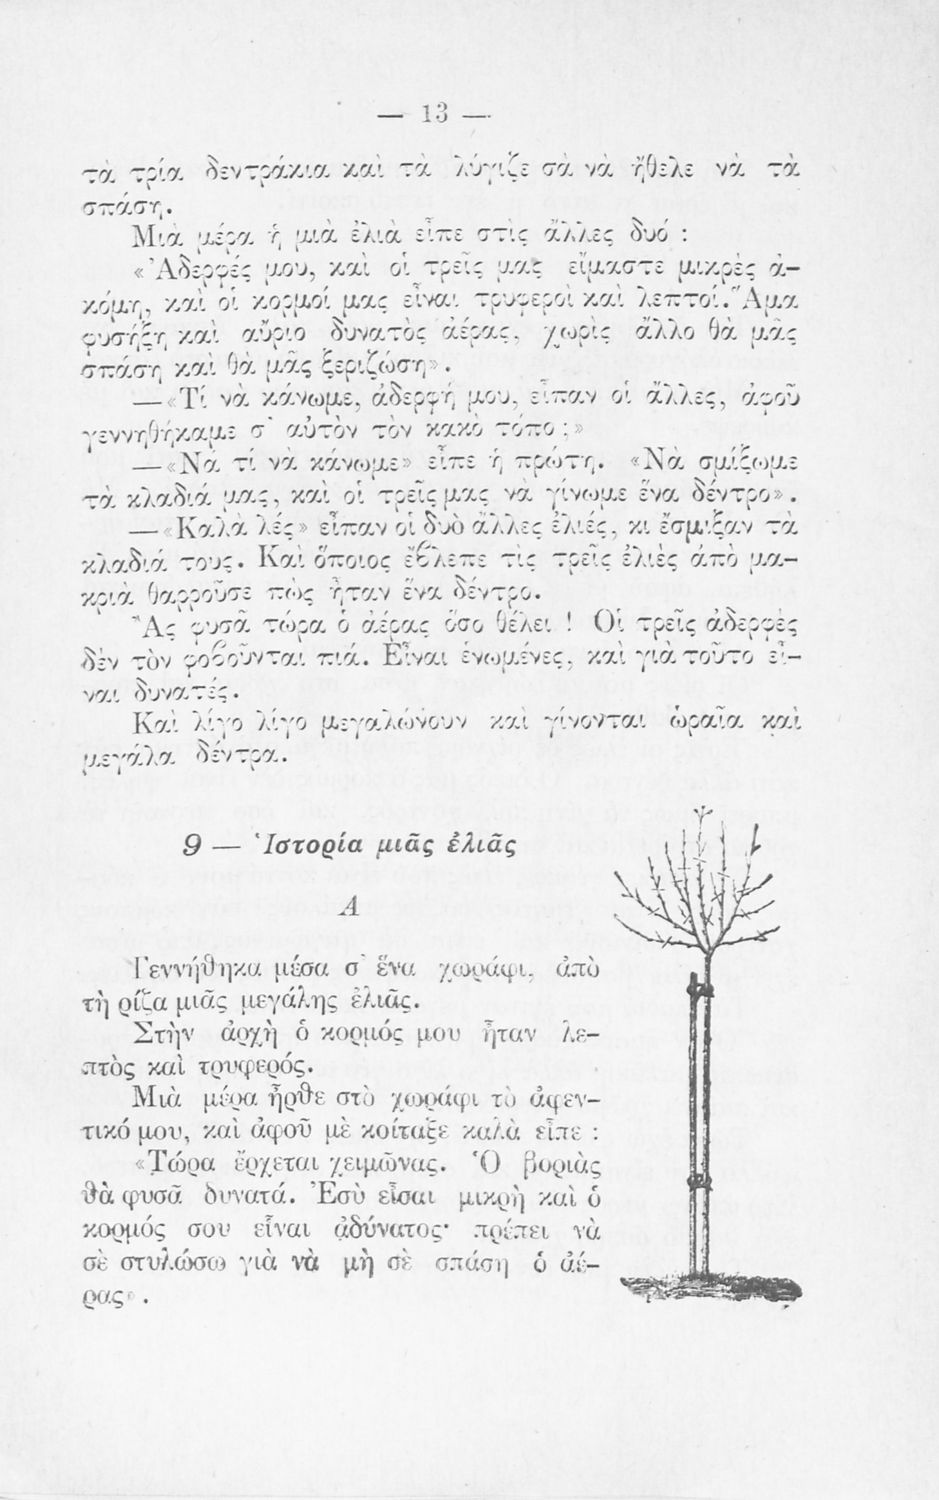 — 13 —
τὰ τρία δεντράκια καὶ τὰ λύγιζε σὰ νὰ ἤθελε νὰ τὰ
σπάση.
Μιὰ μέρα ἡ μιὰ ἐλιὰ εἶπε στὶς ἄλλες δυό :
«Ἀδερφές μου, καὶ οἱ τρεῖς μας εἴμαστε μικρὲς ἀ-
κόμη, καὶ οἱ κορμοί μας εἶναι τρυφεροὶ καὶ λεπτοί. Ἅμα
φυσήξη καὶ αὔριο δυνατὸς ἀέρας, χωρὶς ἄλλο θὰ μᾶς
σπάση καὶ θὰ μᾶς ξεριζώση».
—«Τί νὰ κάνωμε, ἀδερφή μου, εἶπαν οἱ ἄλλες, ἀφοῦ
γεννηθήκαμε σ' αὐτὸν τὸν κακὸ τόπο ;»
—«Νά τί νὰ κάνωμε» εἶπε ἡ πρώτη. «Νὰ σμίξωμε
τὰ κλαδιά μας, καὶ οἱ τρεῖς μας νὰ γίνωμε ἕνα δέντρο».
—«Καλὰ λές» εἶπαν οἱ δυὸ ἄλλες ἐλιές, κι ἔσμιξαν τὰ
κλαδιά τους. Καὶ ὅποιος ἔβλεπε τὶς τρεῖς ἐλιὲς ἀπὸ μα-
κριὰ θαρροῦσε πὼς ἦταν ἕνα δέντρο.
Ἂς φυσᾶ τώρα ὁ ἀέρας ὅσο θέλει ! Οἱ τρεῖς ἀδερφὲς
δὲν τὸν φοβοῦνται πιά. Εἶναι ἑνωμένες, καὶ γιὰ τοῦτο εἶ-
ναι δυνατές.
Καὶ λίγο λίγο μεγαλώνουν καὶ γίνονται ὡραῖα καὶ
μεγάλα δέντρα.
9 — Ἱστορία μιᾶς ἐλιᾶς
Α
Γεννήθηκα μέσα σ' ἕνα χωράφι, ἀπὸ
τὴ ρίζα μιᾶς μεγάλης ἐλιᾶς.
Στὴν ἀρχὴ ὁ κορμός μου ἦταν λε-
πτὸς καὶ τρυφερός.
Μιὰ μέρα ἦρθε στὸ χωράφι τὸ ἀφεν-
τικό μου, καὶ ἀφοῦ μὲ κοίταξε καλὰ εἶπε :
«Τώρα ἔρχεται χειμῶνας. Ὁ βοριὰς
θὰ φυσᾶ δυνατά. Ἐσὺ εἶσαι μικρὴ καὶ ὁ
κορμός σου εἶναι ἀδύνατος· πρέπει νὰ
σὲ στυλώσω γιὰ νὰ μὴ σὲ σπάση ὁ ἀέ-
ρας».